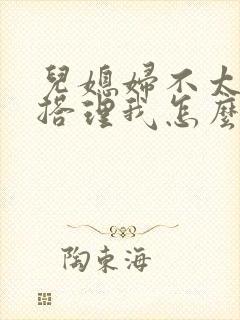 兒媳婦不大
搭理我怎麼
陶東海